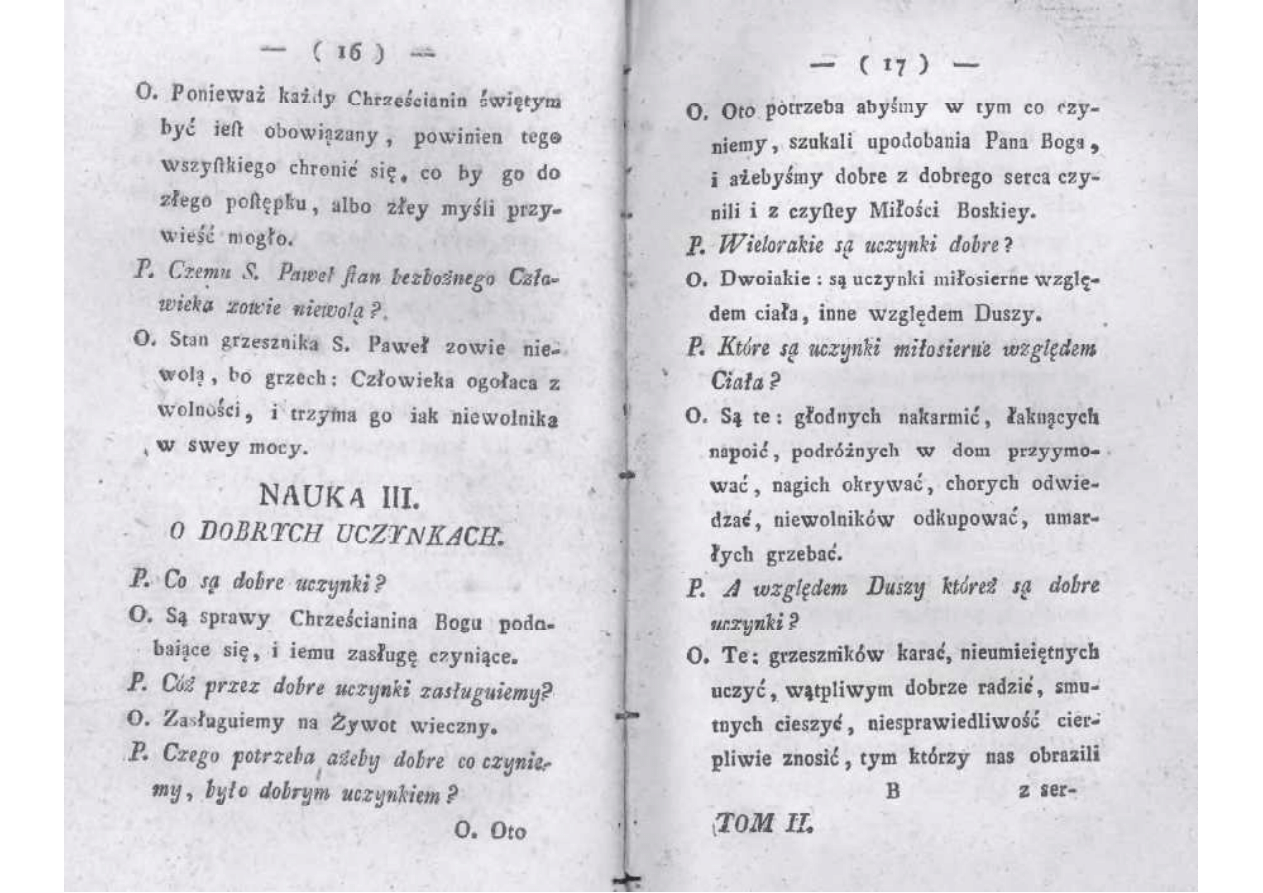 — ( 16 ) —
O. Ponieważ każdy Chrześcianin świętym
być ieſt obowiązany, powinien tego
wszyſtkiego chronić się, co by go do
złego poſtępku, albo złey myśli przy-
wieść mogło.
P. Czemu S. Paweł ſtan bezbożnego Czło-
wieka zowie niewolą?
O. Stan grzesznika S. Paweł zowie nie-
wolą, bo grzech: Człowieka ogołaca z
wolności, i trzyma go iak niewolnika
w swey mocy.
NAUKA III.
O DOBRYCH UCZYNKACH.
P. Co są dobre uczynki?
O. Są sprawy Chrześcianina Bogu podo-
baiące się, i iemu zasługę czyniące.
P. Cóż przez dobre uczynki zasługuiemy?
O. Zasługuiemy na Żywot wieczny.
P. Czego potrzeba ażeby dobre co czynie-
my, było dobrym uczynkiem?
O. Oto
— ( 17 ) —
O. Oto potrzeba abyśmy w tym co czy-
niemy, szukali upodobania Pana Boga,
i ażebyśmy dobre z dobrego serca czy-
nili i z czyſtey Miłości Boskiey.
P. Wielorakie są uczynki dobre?
O. Dwoiakie: są uczynki miłosierne wzglę-
dem ciała, inne względem Duszy.
P. Które są uczynki miłosierne względem
Ciała?
O. Są te: głodnych nakarmić, łaknących
napoić, podróżnych w dom przyymo-
wać, nagich okrywać, chorych odwie-
dzać, niewolników odkupować, umar-
łych grzebać.
P. A względem Duszy któreż są dobre
uczynki?
O. Te: grzeszników karać, nieumieiętnych
uczyć, wątpliwym dobrze radzić, smu-
tnych cieszyć, niesprawiedliwość cier-
pliwie znosić, tym którzy nas obrazili
B z ser-
TOM II.